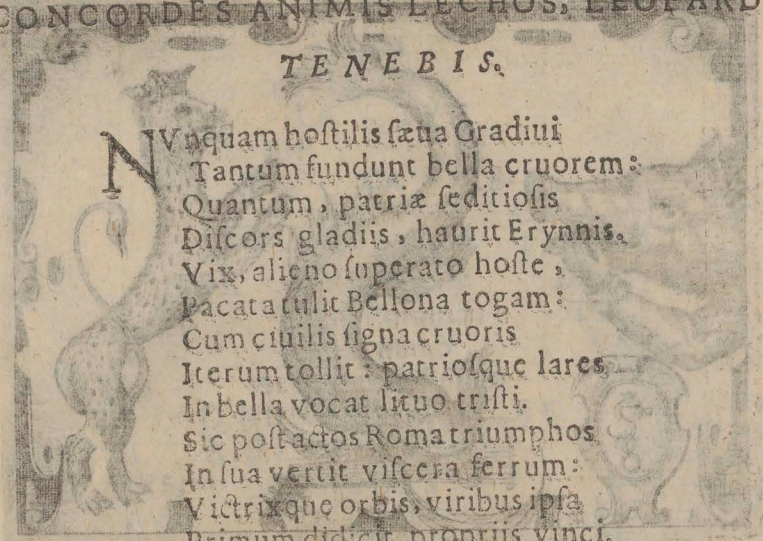 CONCORDES ANIMIS LECHOS, LEOPARD
TENEBIS.
NVnquam hoſtilis ſæua Gradiui
Tantum fundunt bella cruorem:
Quantum, patriæ ſeditioſis
Diſcors gladiis, haurit Erynnis.
Vix, alieno ſuperato hoſte,
Pacata tulit Bellona togam:
Cum ciuilis ſigna cruoris
Iterum tollit: patrioſque lares
In bella vocat lituo triſti.
Sic poſt actos Roma triumphos
In ſua vertit viſcera ferrum:
Victrixque orbis, viribus ipſa
Primum didicit propriis vinci.